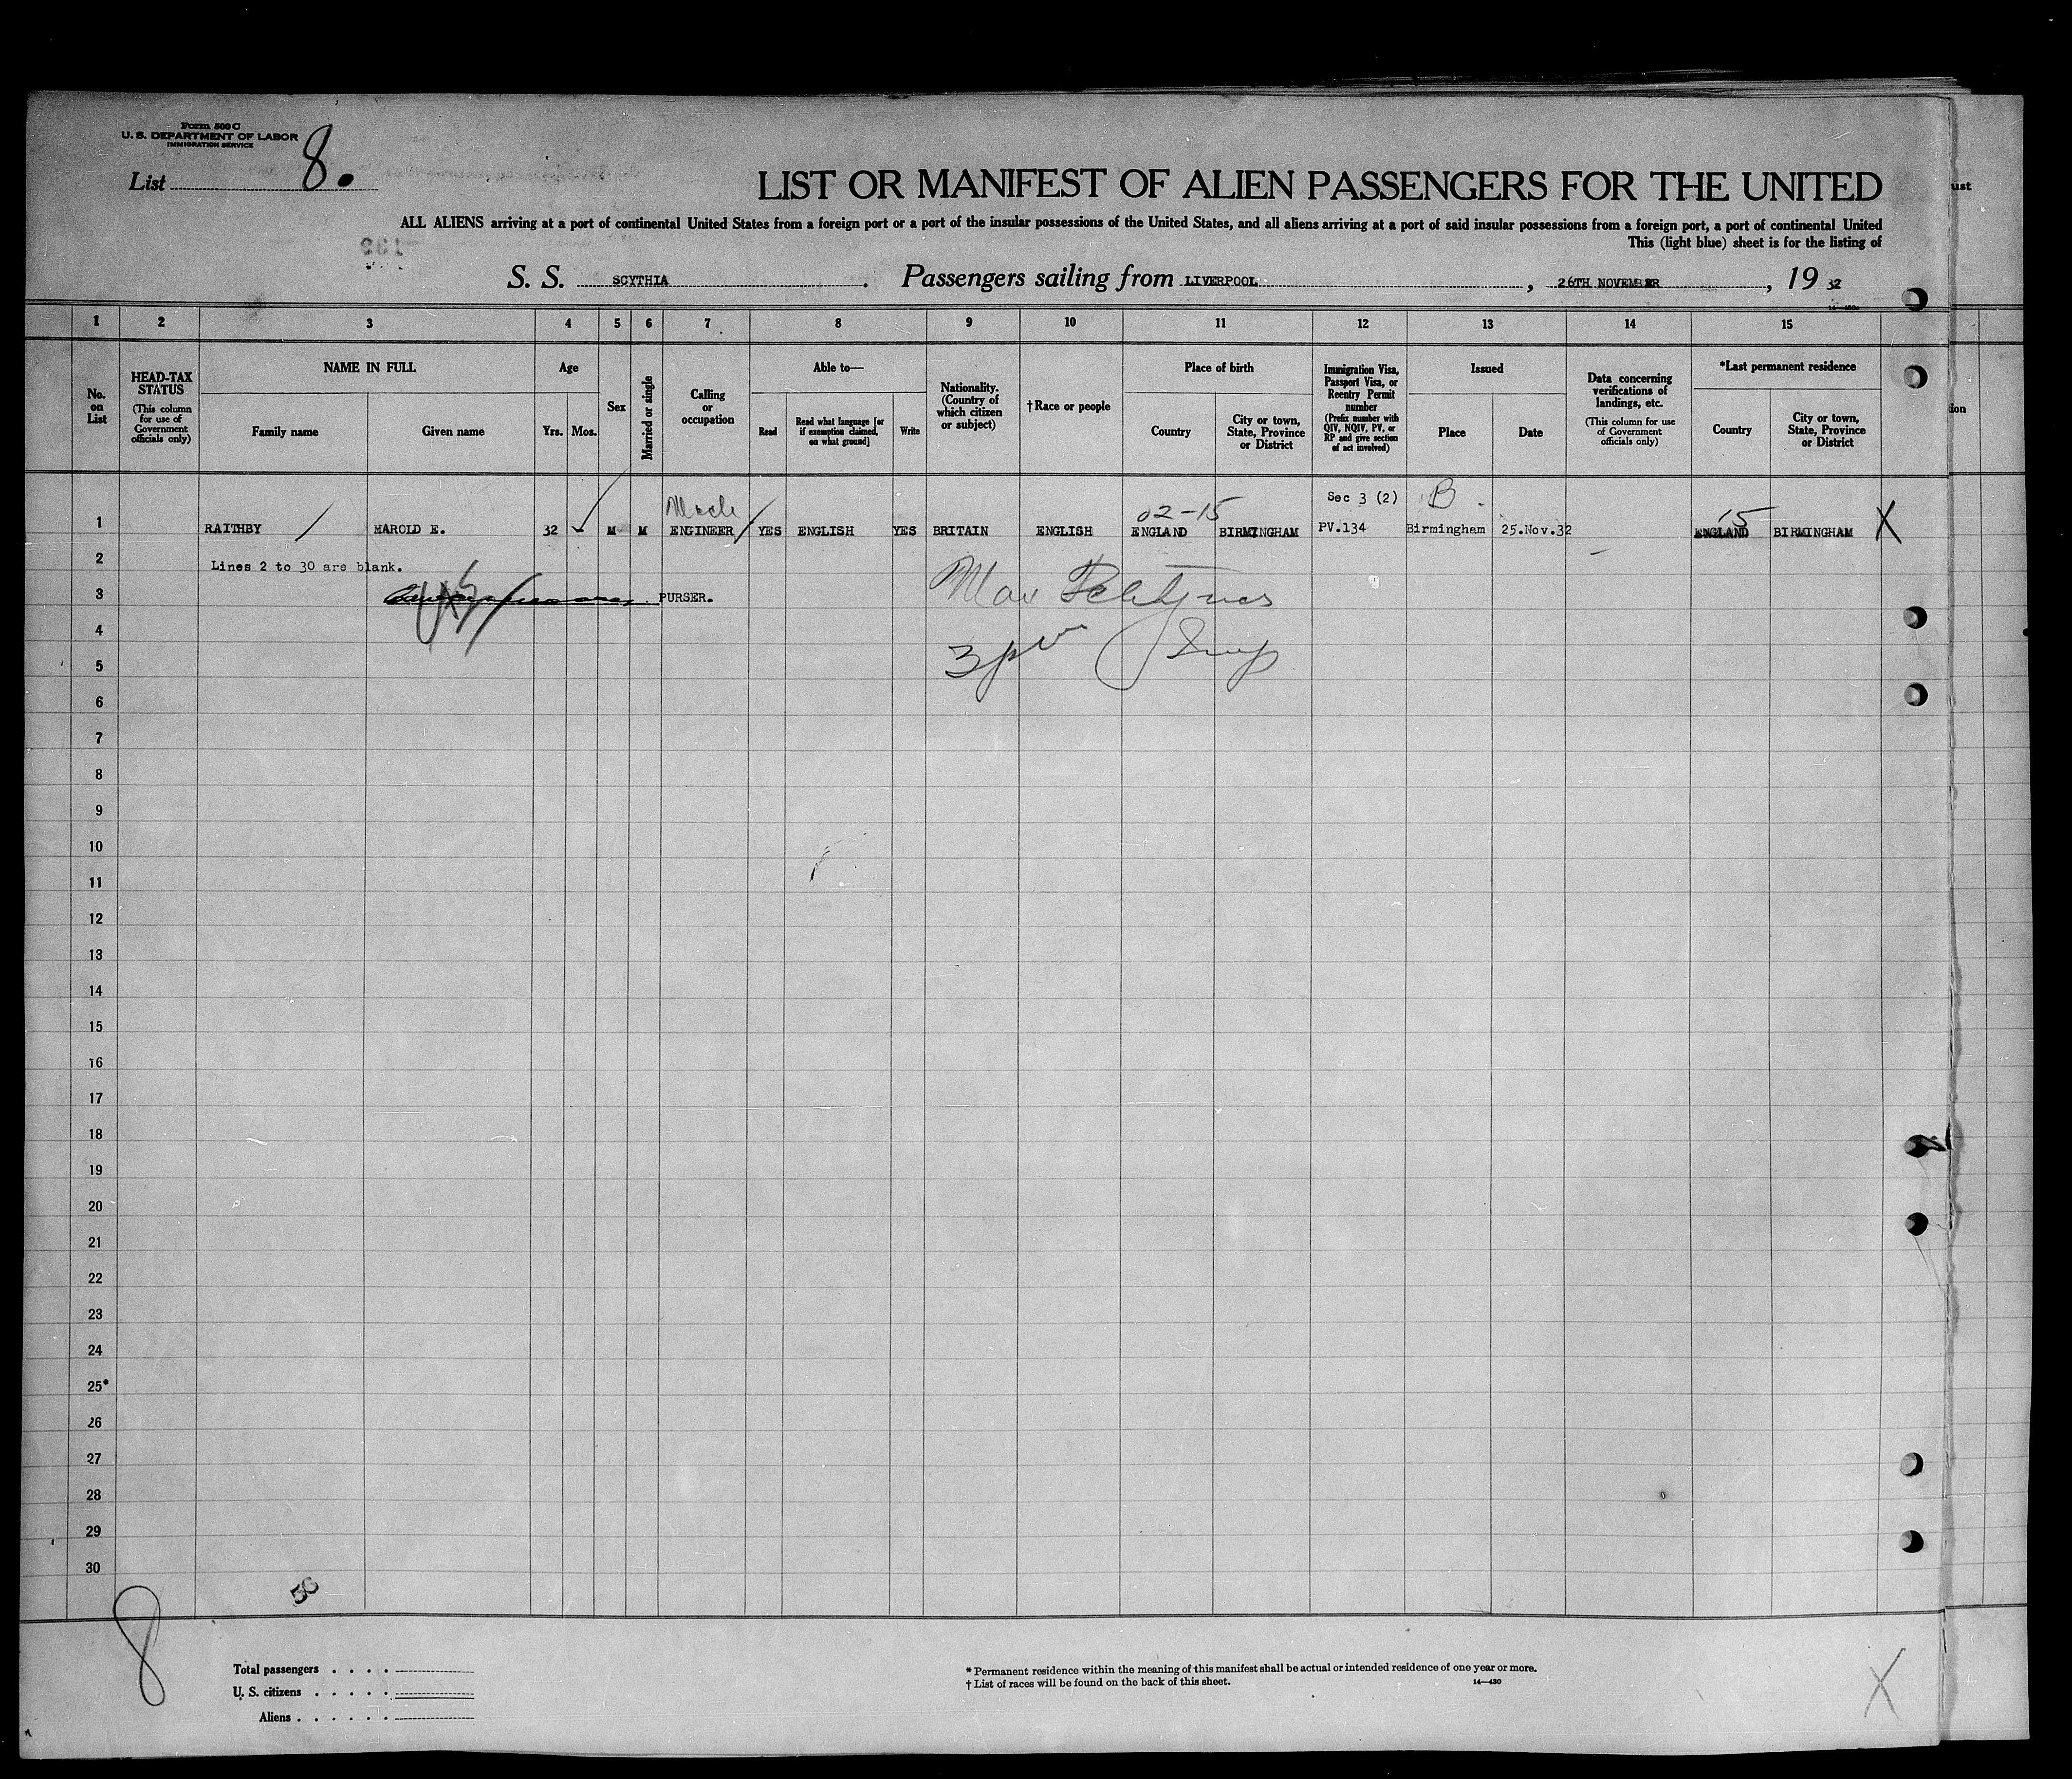 Form 500 C
U. S. DEPARTMENT OF LABOR
IMMIGRATION SERVICE
List 8.
LIST OR MANIFEST OF ALIEN PASSENGERS FOR THE UNITED
ALL ALIENS arriving at a port of continental United States from a foreign port or a port of the insular possessions of the United States, and all aliens arriving at a port of said insular possessions from a foreign port, a port of continental United
This (light blue) sheet is for the listing of
S. S. SCYTHIA. Passengers sailing from LIVERPOOL, 26TH NOVEMBER, 19 32
1 2 3 4 5 6 7 8 9 10 11 12 13 14 15
No. on List
HEAD-TAX STATUS
(This column for use of Government officials only)
NAME IN FULL
Family name
Given name
Age
Yrs.
Mos.
Sex
Married or single
Calling or occupation
Able to—
Read
Read what language [or if exemption claimed, on what ground]
Write
Nationality. (Country of which citizen or subject)
†Race or people
Place of birth
Country
City or town, State, Province or District
Immigration Visa, Passport Visa, or Reentry Permit number
(Prefix number with QIV, NQIV, PV, or RP and give section of act involved)
Issued
Place
Date
Data concerning verifications of landings, etc.
(This column for use of Government officials only)
*Last permanent residence
Country
City or town, State, Province or District
Mech 02-15 Sec 3 (2) B 15
1 RAITHBY HAROLD E. 32 - M M ENGINEER YES ENGLISH YES BRITAIN ENGLISH ENGLAND BIRMINGHAM PV.134 Birmingham 25.Nov.32 ENGLAND BIRMINGHAM X
2 Lines 2 to 30 are blank.
3 PURSER.
4
5
6
7
8
9
10
11
12
13
14
15
16
17
18
19
20
21
22
23
24
25*
26
27
28
29
30
8
Total passengers . . . .
U. S. citizens . . . . .
Aliens . . . . . .
* Permanent residence within the meaning of this manifest shall be actual or intended residence of one year or more.
† List of races will be found on the back of this sheet.
14—430
X